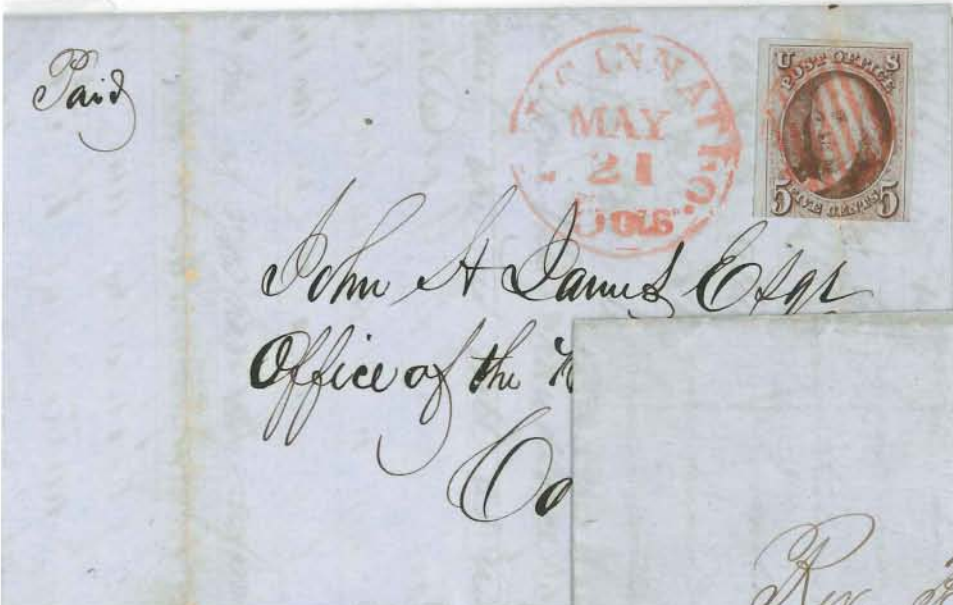 Paid
CINCINNATI O.
MAY
21
5 cts
U S
POST OFFICE
5 FIVE CENTS 5
John H James Esqr
Office of the
Co
Rev